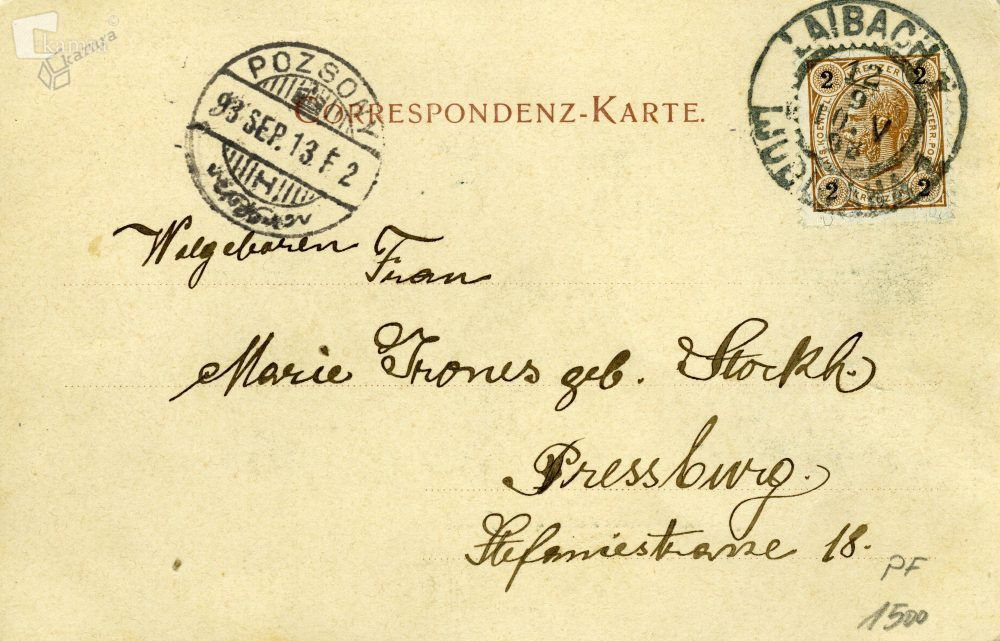 kamra
POZSONY
93 SEP. 13. F 2
H
CORRESPONDENZ-KARTE.
LAIBACH
12
9
V
2 KREUZER 2
2 KREUZER 2
Wolgeboren
Frau
Marie Irones geb. Stockh.
Pressburg.
Stefaniestrasse 18.
PF
1500